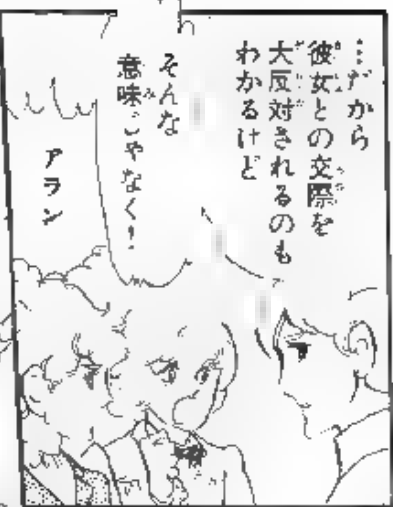 …だから
彼女との交際を
大反対されるのも
わかるけど
そんな
意味じゃなく！
アラン